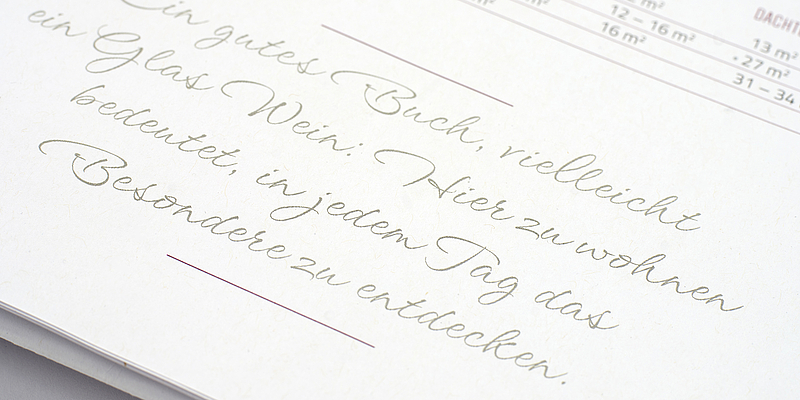 12 – 16 m²
16 m²
13 m²
27 m²
31 – 34
Ein gutes Buch, vielleicht
ein Glas Wein: Hier zu wohnen
bedeutet, in jedem Tag das
Besondere zu entdecken.